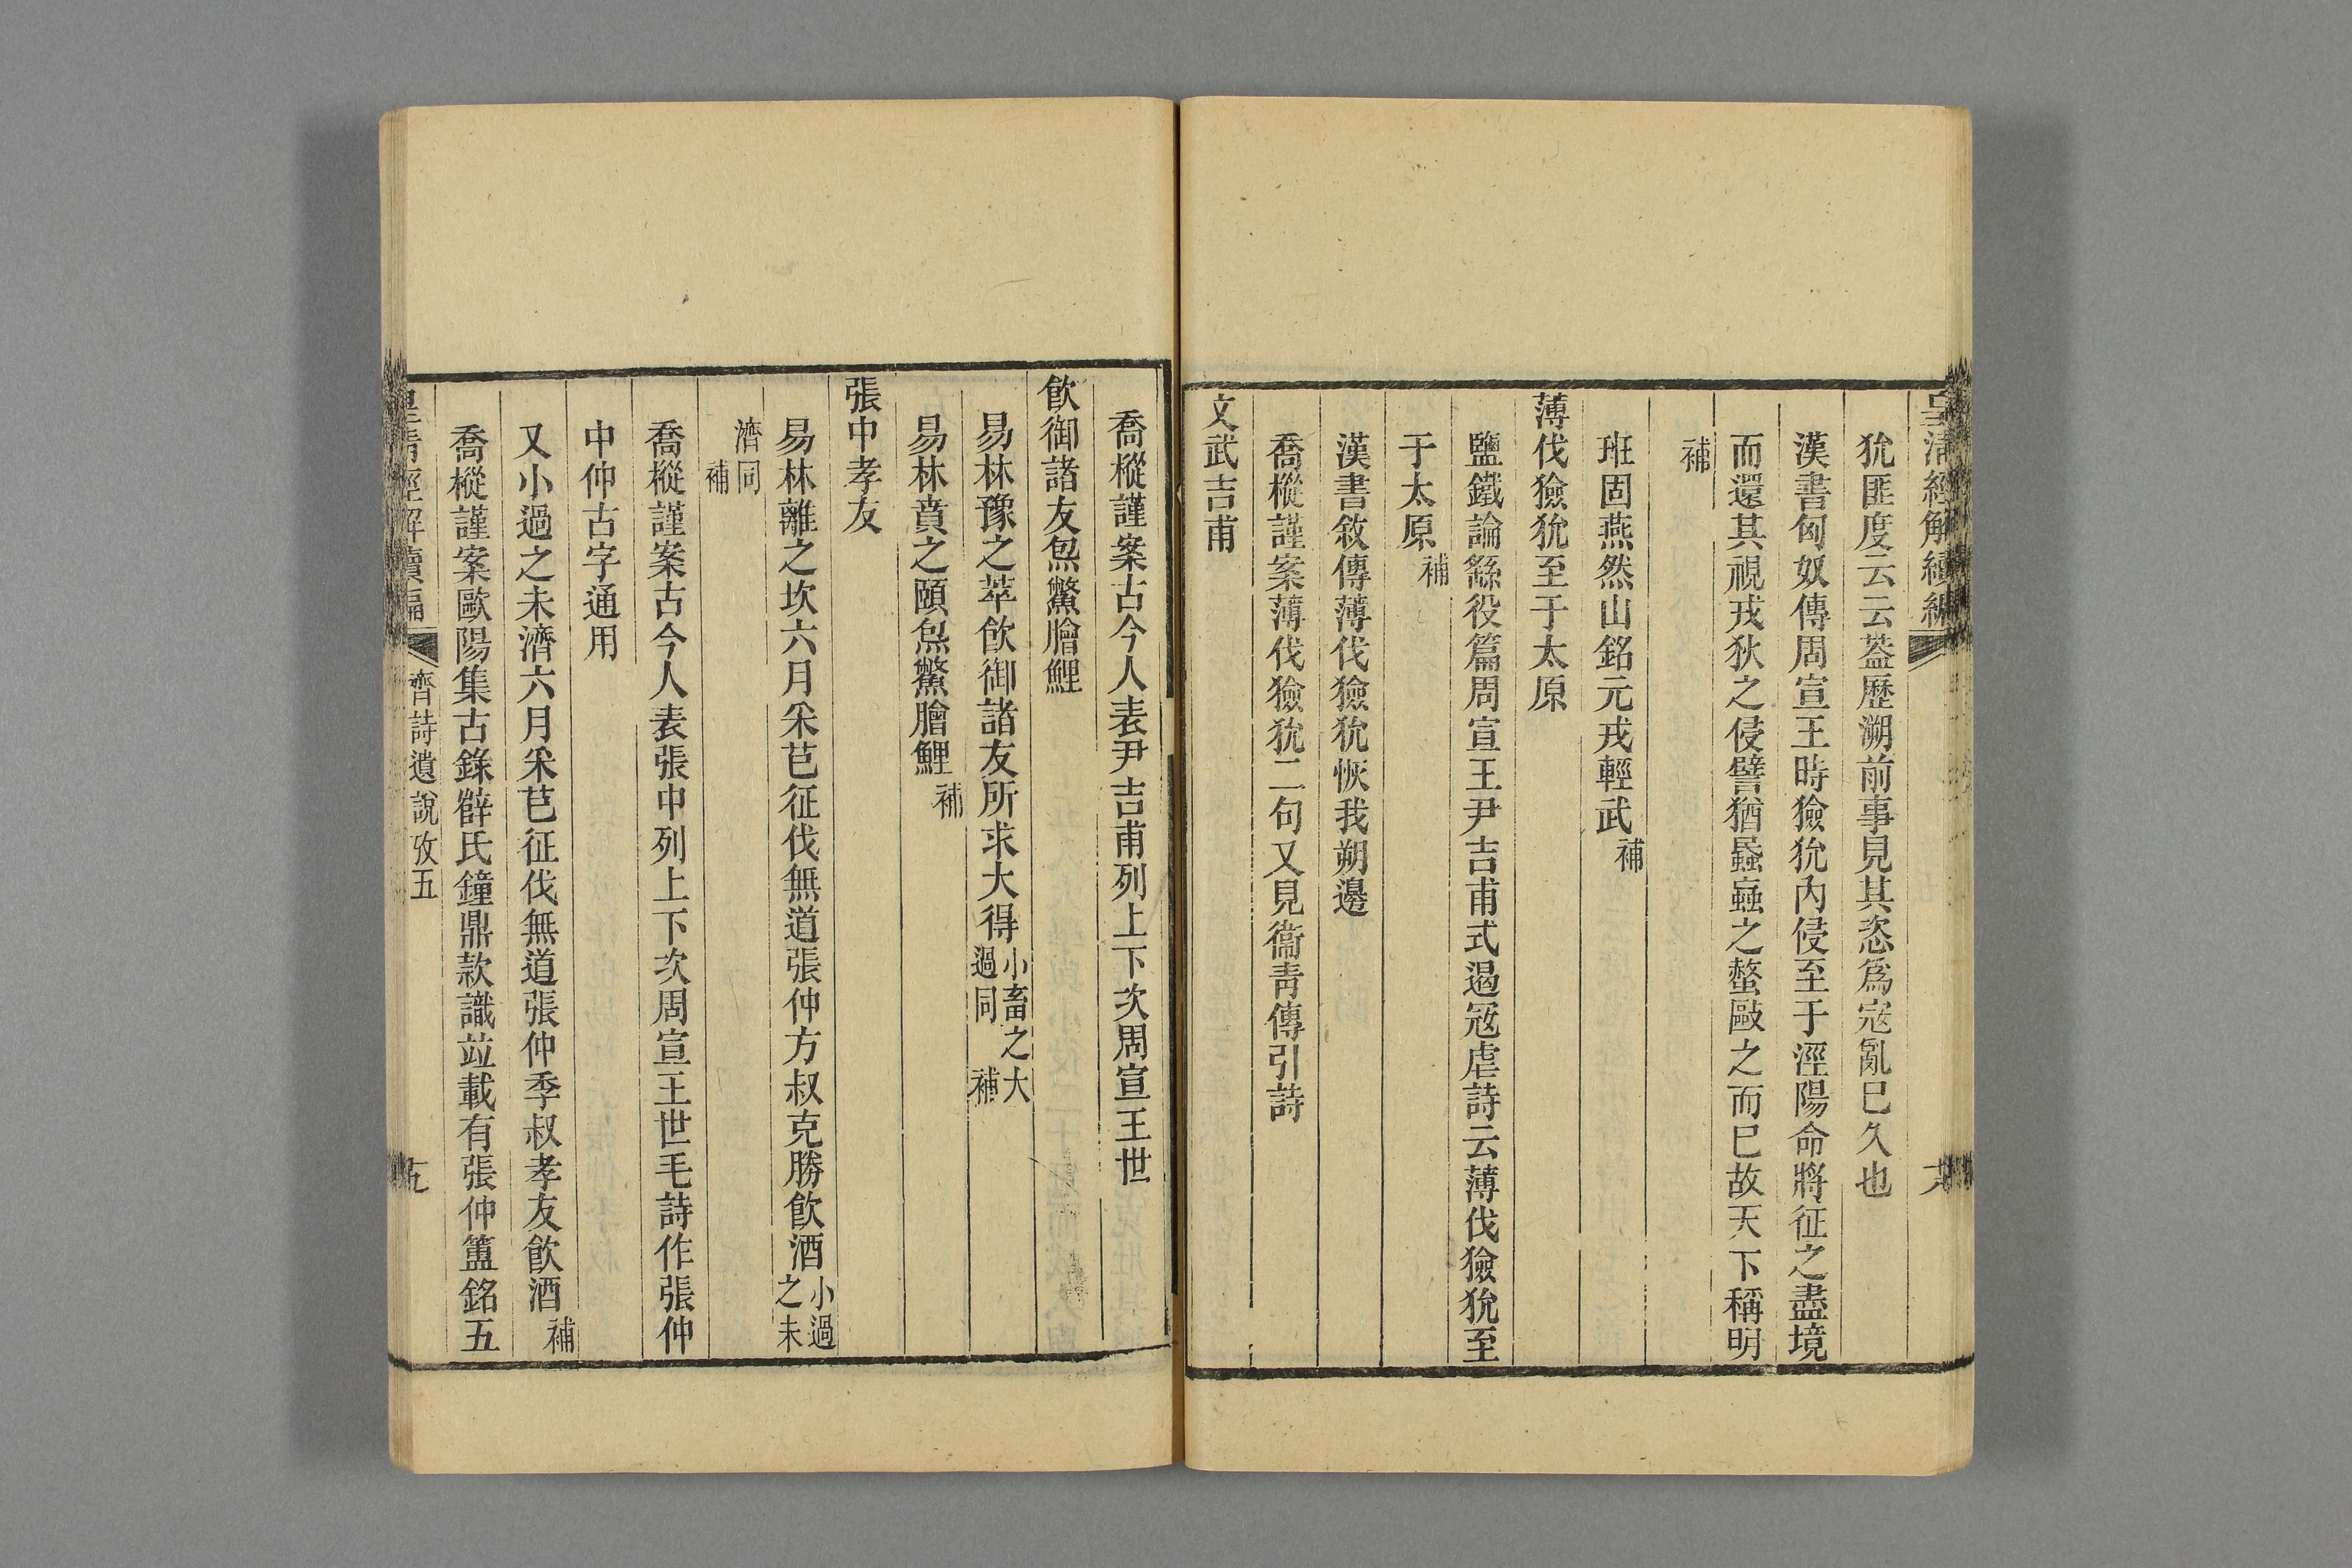 皇清經解續編
犹匪度云云葢歷溯前事見其恣爲寇亂巳久也
漢書匈奴傳周宣王時獫狁内侵至于涇陽命將征之盡境
而還其視戎狄之侵譬猶蟁蝱之螫敺之而巳故天下稱明
補
班固燕然山銘元戎輕武補
薄伐獫狁至于太原
鹽鐵論繇役篇周宣王尹吉甫式遏寇虐詩云薄伐獫狁至
于太原補
漢書敘傳薄伐獫狁恢我朔邊
喬樅謹案薄伐獫狁二句又見衞青傳引詩
文武吉甫
喬樅謹案古今人表尹吉甫列上下次周宣王世
飮御諸友炰鱉膾鯉
易林豫之萃飮御諸友所求大得小畜之大過同補
易林賁之頤炰鱉膾鯉補
張中孝友
易林離之坎六月釆芑征伐無道張仲方叔克勝飮酒小過之未
濟同補
喬樅謹案古今人表張中列上下次周宣王世毛詩作張仲
中仲古字通用
又小過之未濟六月釆芑征伐無道張仲季叔孝友飮酒補
喬樅謹案歐陽集古錄薛氏鐘鼎款識竝載有張仲簠銘五
皇清經解續編 齊詩遺說攷五